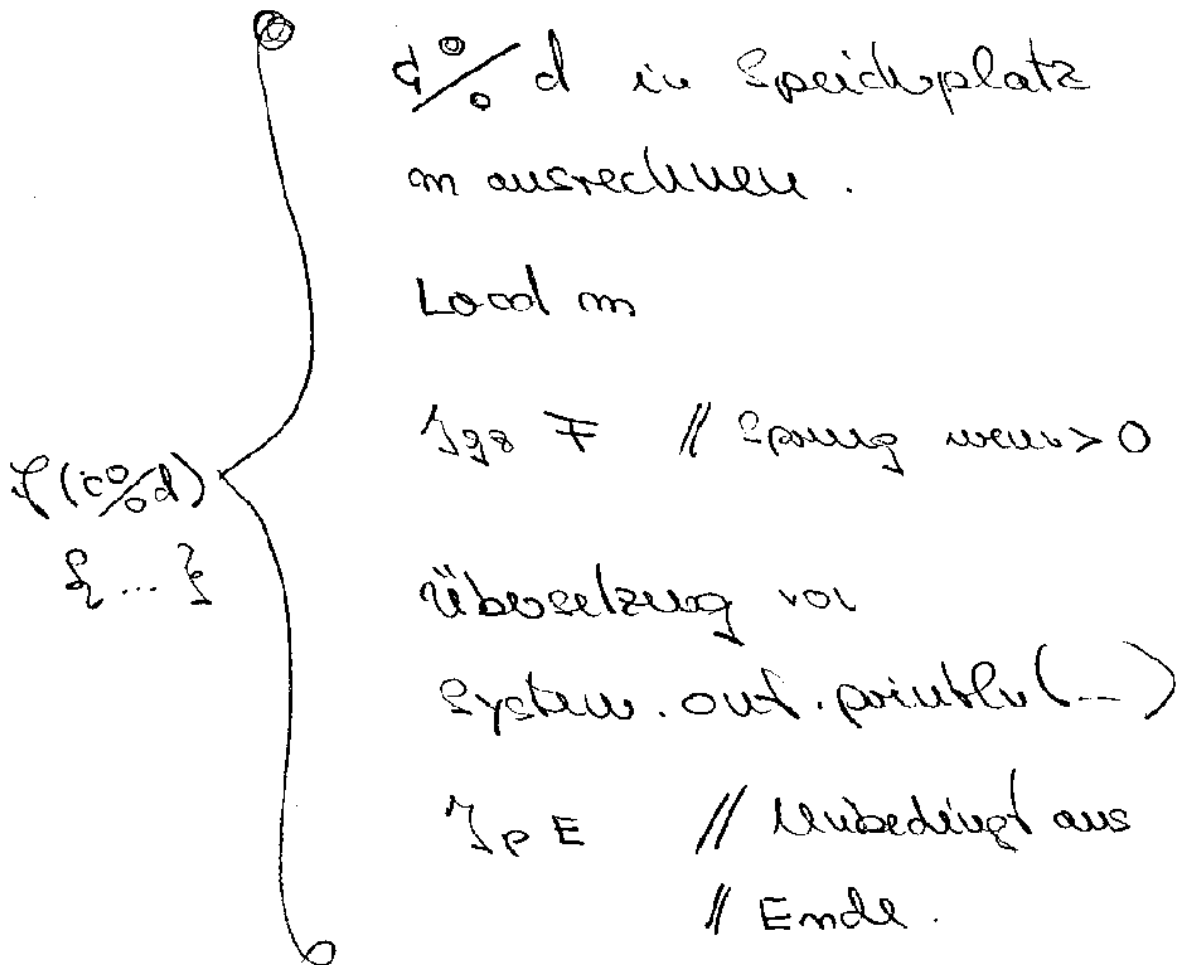 d % d in Speichplatz
m ausrechnen.
Load m
Jgz F // Sprung wenn > 0
if (c % d)
{ ... }
Übersetzung von
System.out.println(...)
Jp E // Unbedingt ans
// Ende.